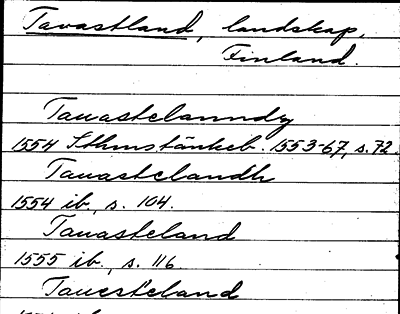 Tavastland, landskap,
Finland.
Tauastelanndh
1554 Sthmstänkeb. 1553-67, s. 72.
Tauastelandh
1554 ib., s. 104.
Tauasteland
1555 ib., s. 116.
Tauesteland